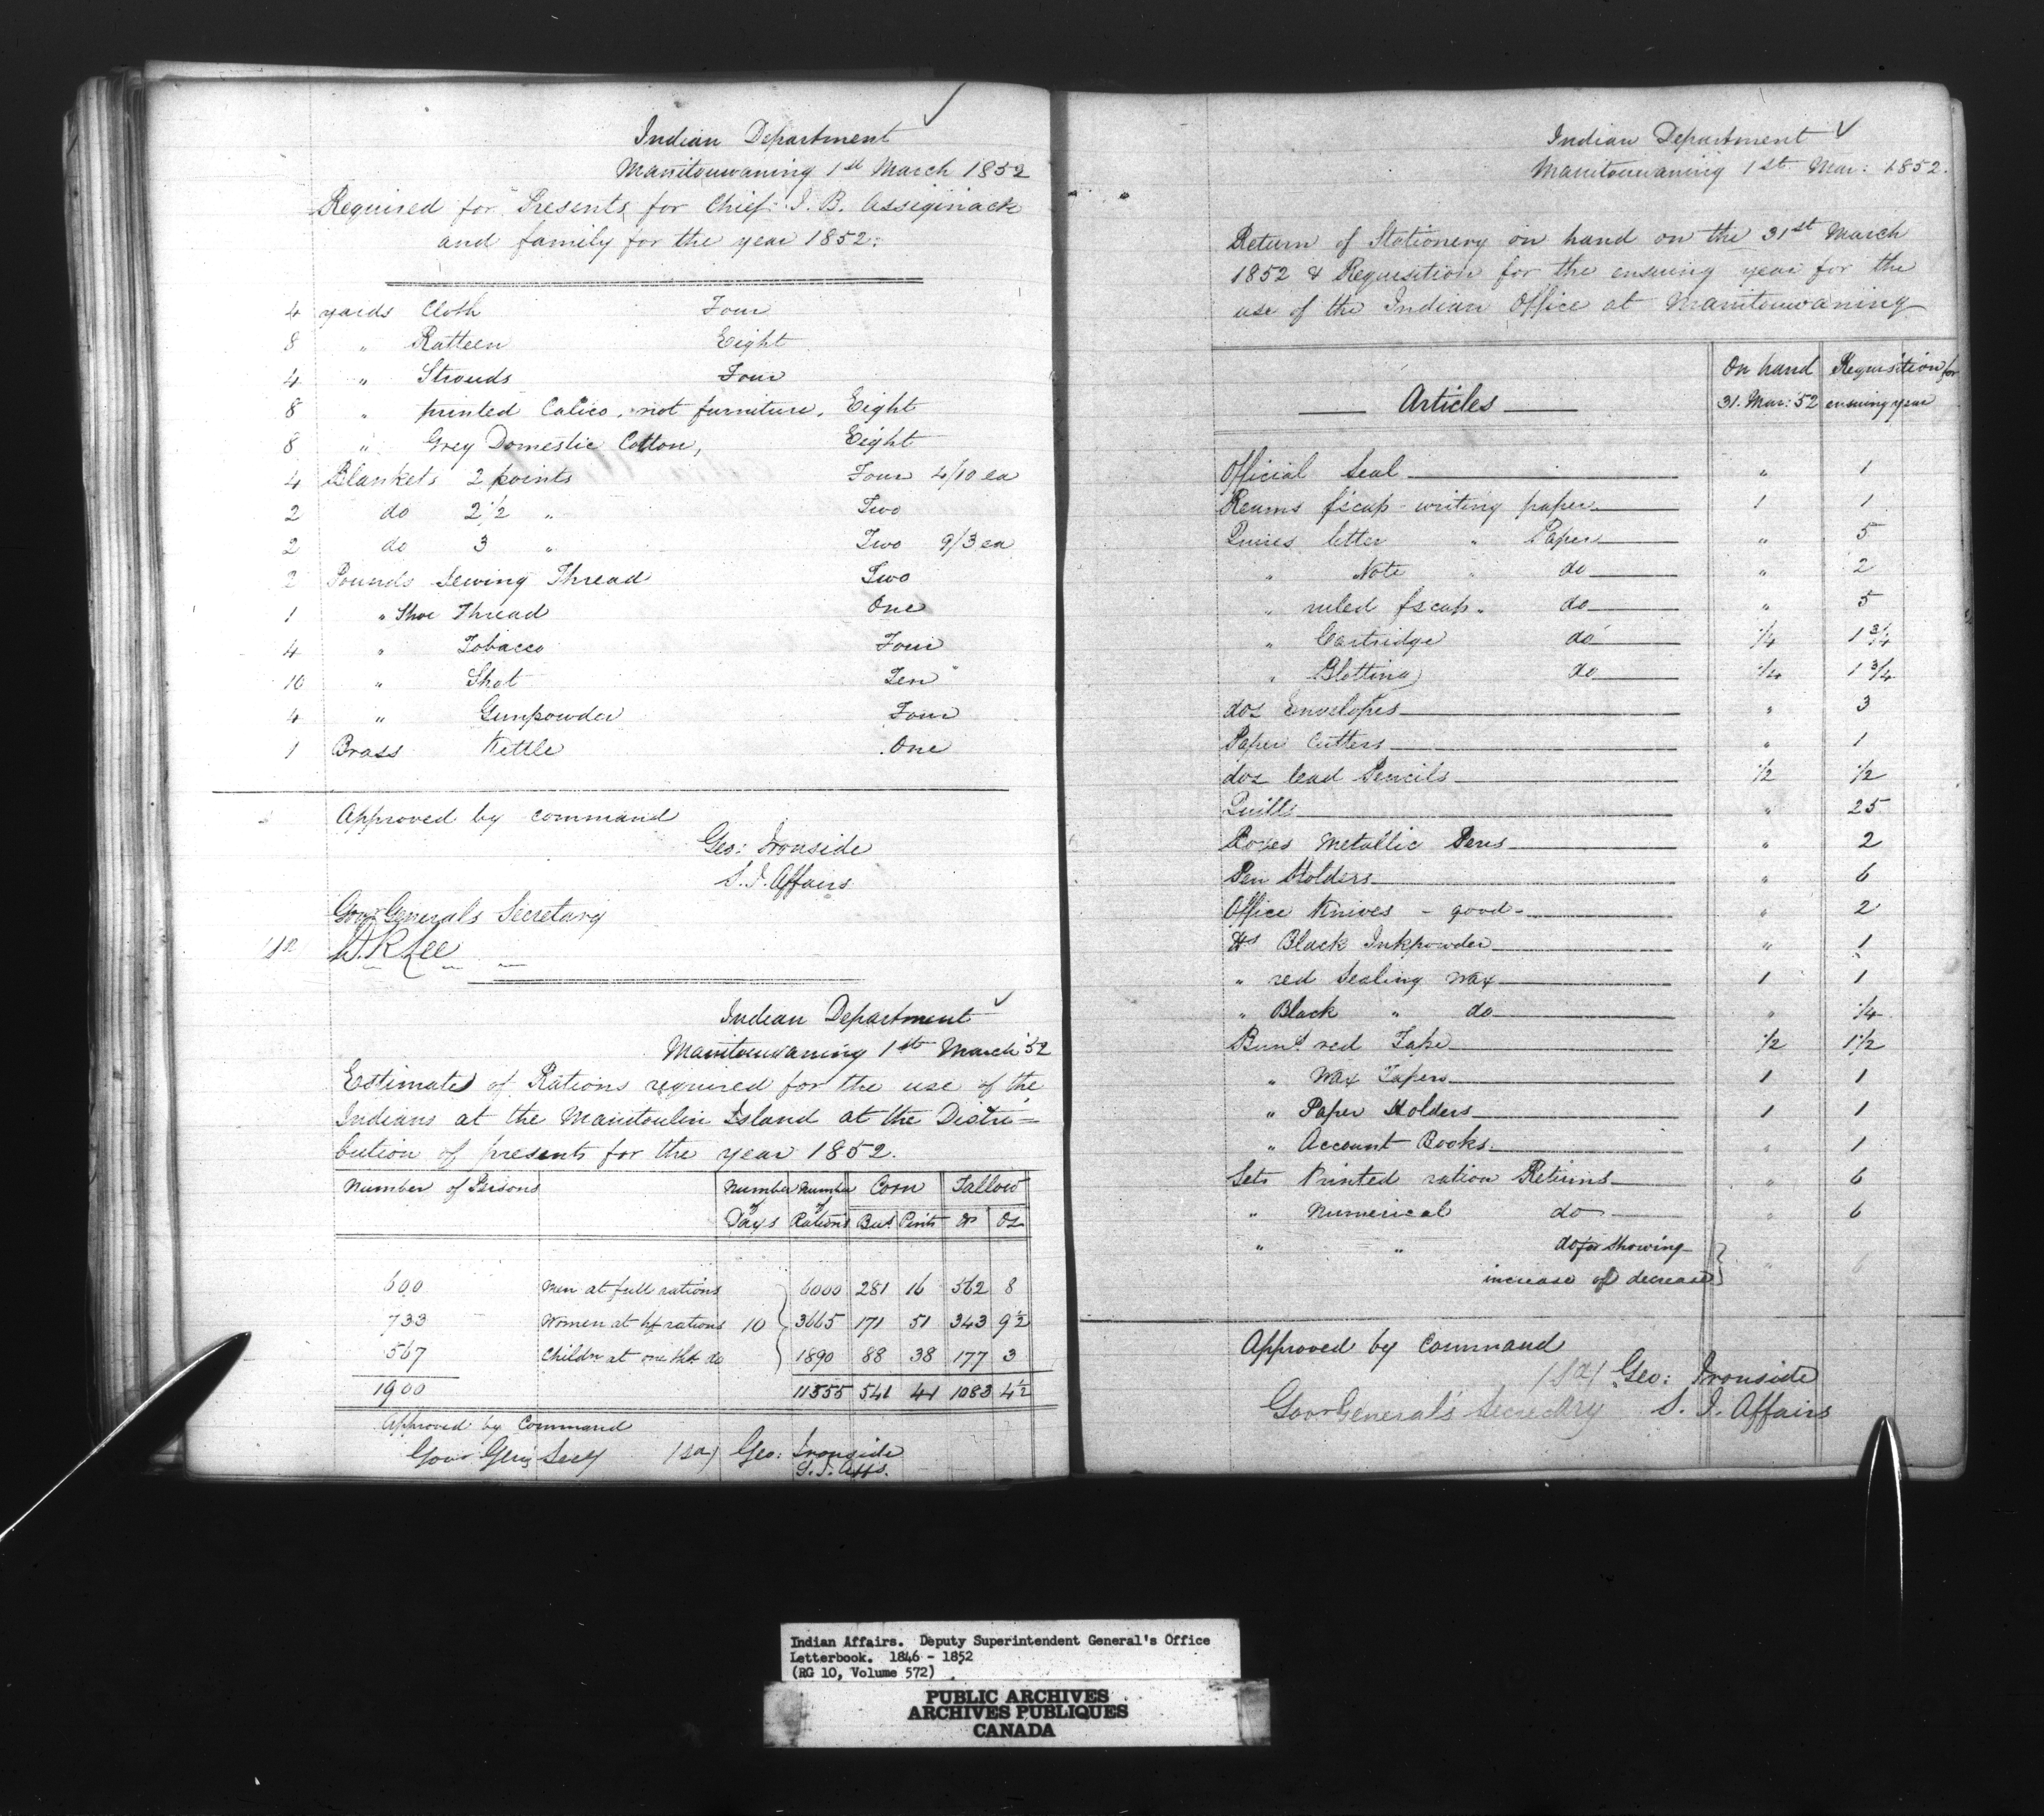 Indian Department
Manitouwaning 1st March 1852
Required for Presents for Chief J. B. Assiginack
and family for the year 1852.
4 yards Cloth Four
8 " Ratteen Eight
4 " Strouds Four
8 " printed Calico, not furniture, Eight
8 " Grey Domestic Cotton, Eight
4 Blankets 2 points Four 4/10 ea
2 do 2 1/2 " Two
2 do 3 " Two 9/3 ea
2 Pounds Sewing Thread Two
1 " Shoe Thread One
4 " Tobacco Four
10 " Shot Ten
4 " Gunpowder Four
1 Brass Kettle One
Approved by command
Geo: Ironside
S. I. Affairs
Govr Generals Secretary
Indian Department
Manitouwaning 1st March '52
Estimate of Rations required for the use of the
Indians at the Manitoulin Island at the Distri=
bution of presents for the year 1852.
Number of Persons Number of Days Number of Rations Corn Tallow
Bus Pints lbs Oz
600 Men at full rations 6000 281 16 562 8
733 Women at hf rations 10 3665 171 51 343 9 1/2
567 Childn at one thd do 1890 88 38 177 3
1900 11555 541 41 1083 4 1/2
Approved by Command
Govr Genls Secy (sd) Geo: Ironside
S. I. Affs.
Indian Department
Manitouwaning 1st Mar: 1852.
Return of Stationery on hand on the 31st March
1852 & Requisition for the ensuing year for the
use of the Indian Office at Manitouwaning
Articles On hand 31. Mar: 52 Requisition for ensuing year
Official Seal " 1
Reams fscap writing paper 1 1
Quires letter " Paper " 5
" Note " do " 2
" ruled fscap " do " 5
" Cartridge do 1/4 1 3/4
" Blotting do 1/4 1 3/4
doz Envelopes " 3
Paper Cutters " 1
doz lead Pencils 1/2 1/2
Quills " 25
Boxes Metallic Pens " 2
Pen Holders " 6
Office Knives - good - " 2
lbs Black Inkpowder " 1
" red Sealing Wax 1 1
" Black " do " 1/4
Bunds red Tape 1/2 1 1/2
" Wax Tapers 1 1
" Paper Holders 1 1
" Account Books " 1
Sets Printed ration Returns " 6
" Numerical do " 6
" " do for showing
increase of decrease } " 6
Approved by Command
(sd) Geo: Ironside
Govr General's Secretary S. I. Affairs
Indian Affairs. Deputy Superintendent General's Office
Letterbook. 1846 - 1852
(RG 10, Volume 572)
PUBLIC ARCHIVES
ARCHIVES PUBLIQUES
CANADA